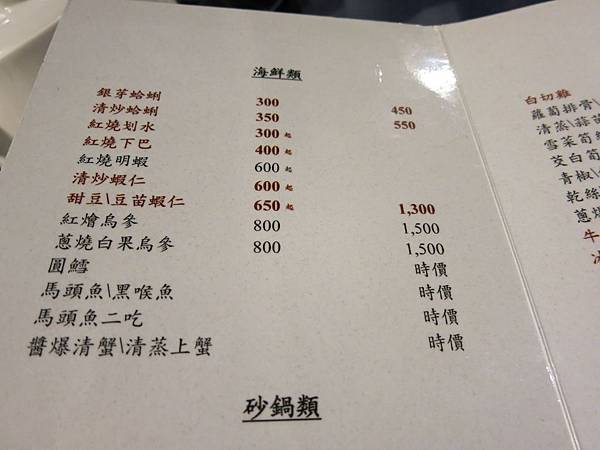 海鮮類
銀芽蛤蜊 300 450
清炒蛤蜊 350 550
紅燒划水 300起
紅燒下巴 400起
紅燒明蝦 600起
清炒蝦仁 600起
甜豆\豆苗蝦仁 650起 1,300
紅燴烏參 800 1,500
蔥燒白果烏參 800 1,500
圓鱈 時價
馬頭魚\黑喉魚 時價
馬頭魚二吃 時價
醬爆清蟹\清蒸上蟹 時價
砂鍋類
白切雞
蘿蔔排骨\
清蒸\蒜苗
雪菜筍
茭白筍
青椒\
乾絲
蔥
牛